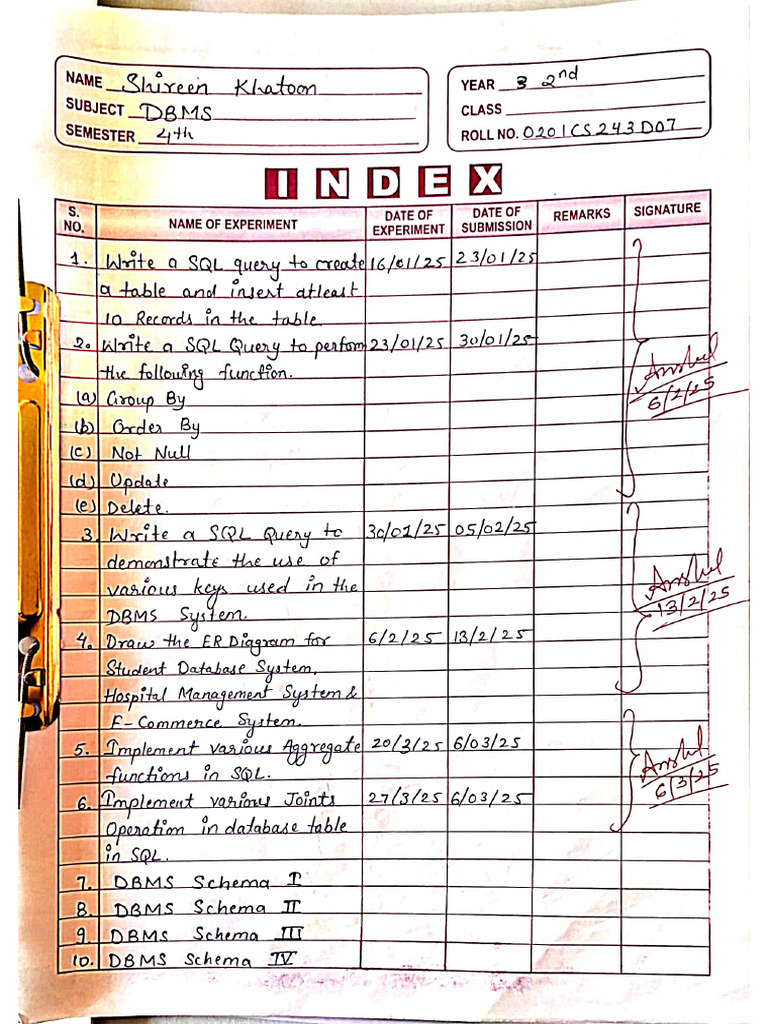 NAME Shireen Khatoon
SUBJECT DBMS
SEMESTER 4th
YEAR 3 2nd
CLASS
ROLL NO. 0201CS243D07
INDEX
S. NO. NAME OF EXPERIMENT DATE OF EXPERIMENT DATE OF SUBMISSION REMARKS SIGNATURE
1. Write a SQL query to create 16/01/25 23/01/25
a table and insert atleast
10 Records in the table.
2. Write a SQL Query to perform 23/01/25 30/01/25
the following function.
(a) Group By
6/2/25
(b) Order By
(c) Not Null
(d) Update
(e) Delete.
3. Write a SQL Query to 30/01/25 05/02/25
demonstrate the use of
various keys used in the
13/2/25
DBMS System.
4. Draw the ER Diagram for 6/2/25 13/2/25
Student Database System,
Hospital Management System &
E-Commerce System.
5. Implement various Aggregate 20/3/25 6/03/25
functions in SQL.
6/3/25
6. Implement various Joints 27/3/25 6/03/25
Operation in database table
in SQL.
7. DBMS Schema I
8. DBMS Schema II
9. DBMS Schema III
10. DBMS Schema IV